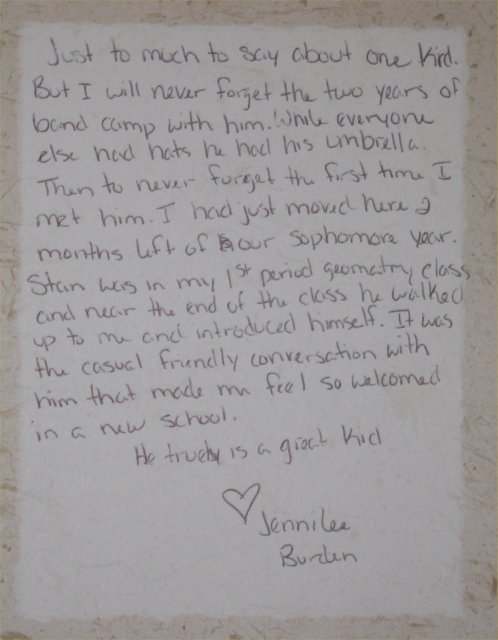 Just to much to say about one Kid.
But I will never forget the two years of
band camp with him. While everyone
else had hats he had his umbrella.
Then to never forget the first time I
met him. I had just moved here 2
months left of our sophomore year.
Stan was in my 1st period geomatry class
and near the end of the class he walked
up to me and introduced himself. It was
the casual friendly conversation with
him that made me feel so welcomed
in a new school.
He truely is a great Kid
♡ Jennilee
Burden